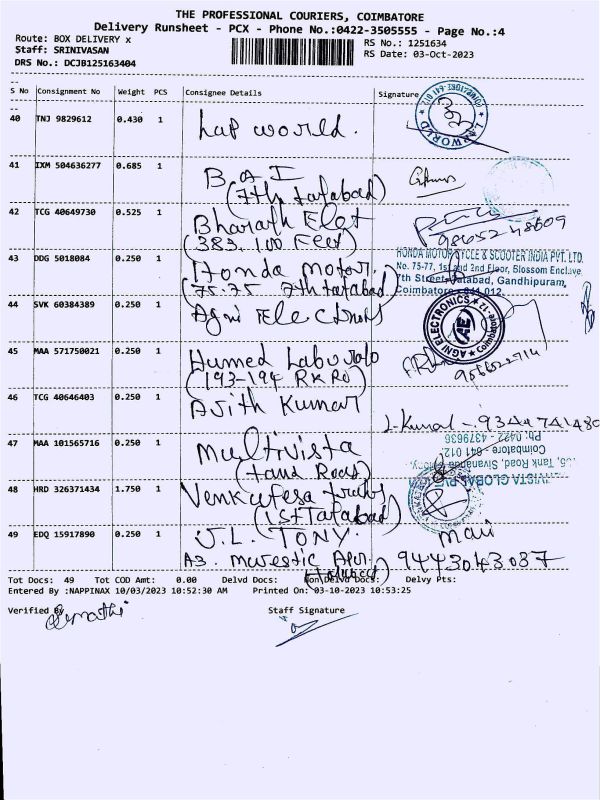 THE PROFESSIONAL COURIERS, COIMBATORE
Delivery Runsheet - PCX - Phone No.:0422-3505555 - Page No.:4
Route: BOX DELIVERY x
RS No.: 1251634
Staff: SRINIVASAN
RS Date: 03-Oct-2023
DRS No.: DCJB125163404
S No Consignment No Weight PCS Consignee Details Signature
40 TNJ 9829612 0.430 1 Lap world.
LAPWORLD
41 IXM 504636277 0.685 1 B A I
(7th tatabad)
42 TCG 40649730 0.525 1 Bharath Elet
(383, 100 Feet)
98652 48609
43 DDG 5018084 0.250 1 Honda motor.
(75-75 7th tatabad)
HONDA MOTORCYCLE & SCOOTER INDIA PVT. LTD.
No. 75-77, 1st and 2nd Floor, Blossom Enclave,
7th Street, Tatabad, Gandhipuram,
Coimbatore - 641 012
44 SVK 60384389 0.250 1 Agni
AGNI ELECTRONICS
AE
45 MAA 571750021 0.250 1
(193-194 RK Ro)
46 TCG 40646403 0.250 1 Ajith Kumar
47 MAA 101565716 0.250 1 multivista
(tand Road)
Ph: 0422 - 4379636
Coimbatore - 641 012.
48 HRD 326371434 1.750 1
(1st Tatabad)
49 EDQ 15917890 0.250 1 J.L. TONY.
mani
A3.
9443043087
Tot Docs: 49 Tot COD Amt: 0.00 Delvd Docs: Non Delvd Docs: Delvy Pts:
Entered By :NAPPINAX 10/03/2023 10:52:30 AM Printed On: 03-10-2023 10:53:25
Verified By
Staff Signature